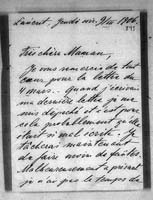 Lancut, jeudi soir 9/III 1906.
Très chère Maman,
Je vous remercie de tout
cœur pour la lettre du
4 mars. quand j'écrivais
ma dernière lettre je me
suis depeché et c'est pour
cela probablement qu'elle
était si mal écrite. Je
tâcherai maintenant
de faire moins de fautes
Malheureusement à présent
je n'ai pas le temps de